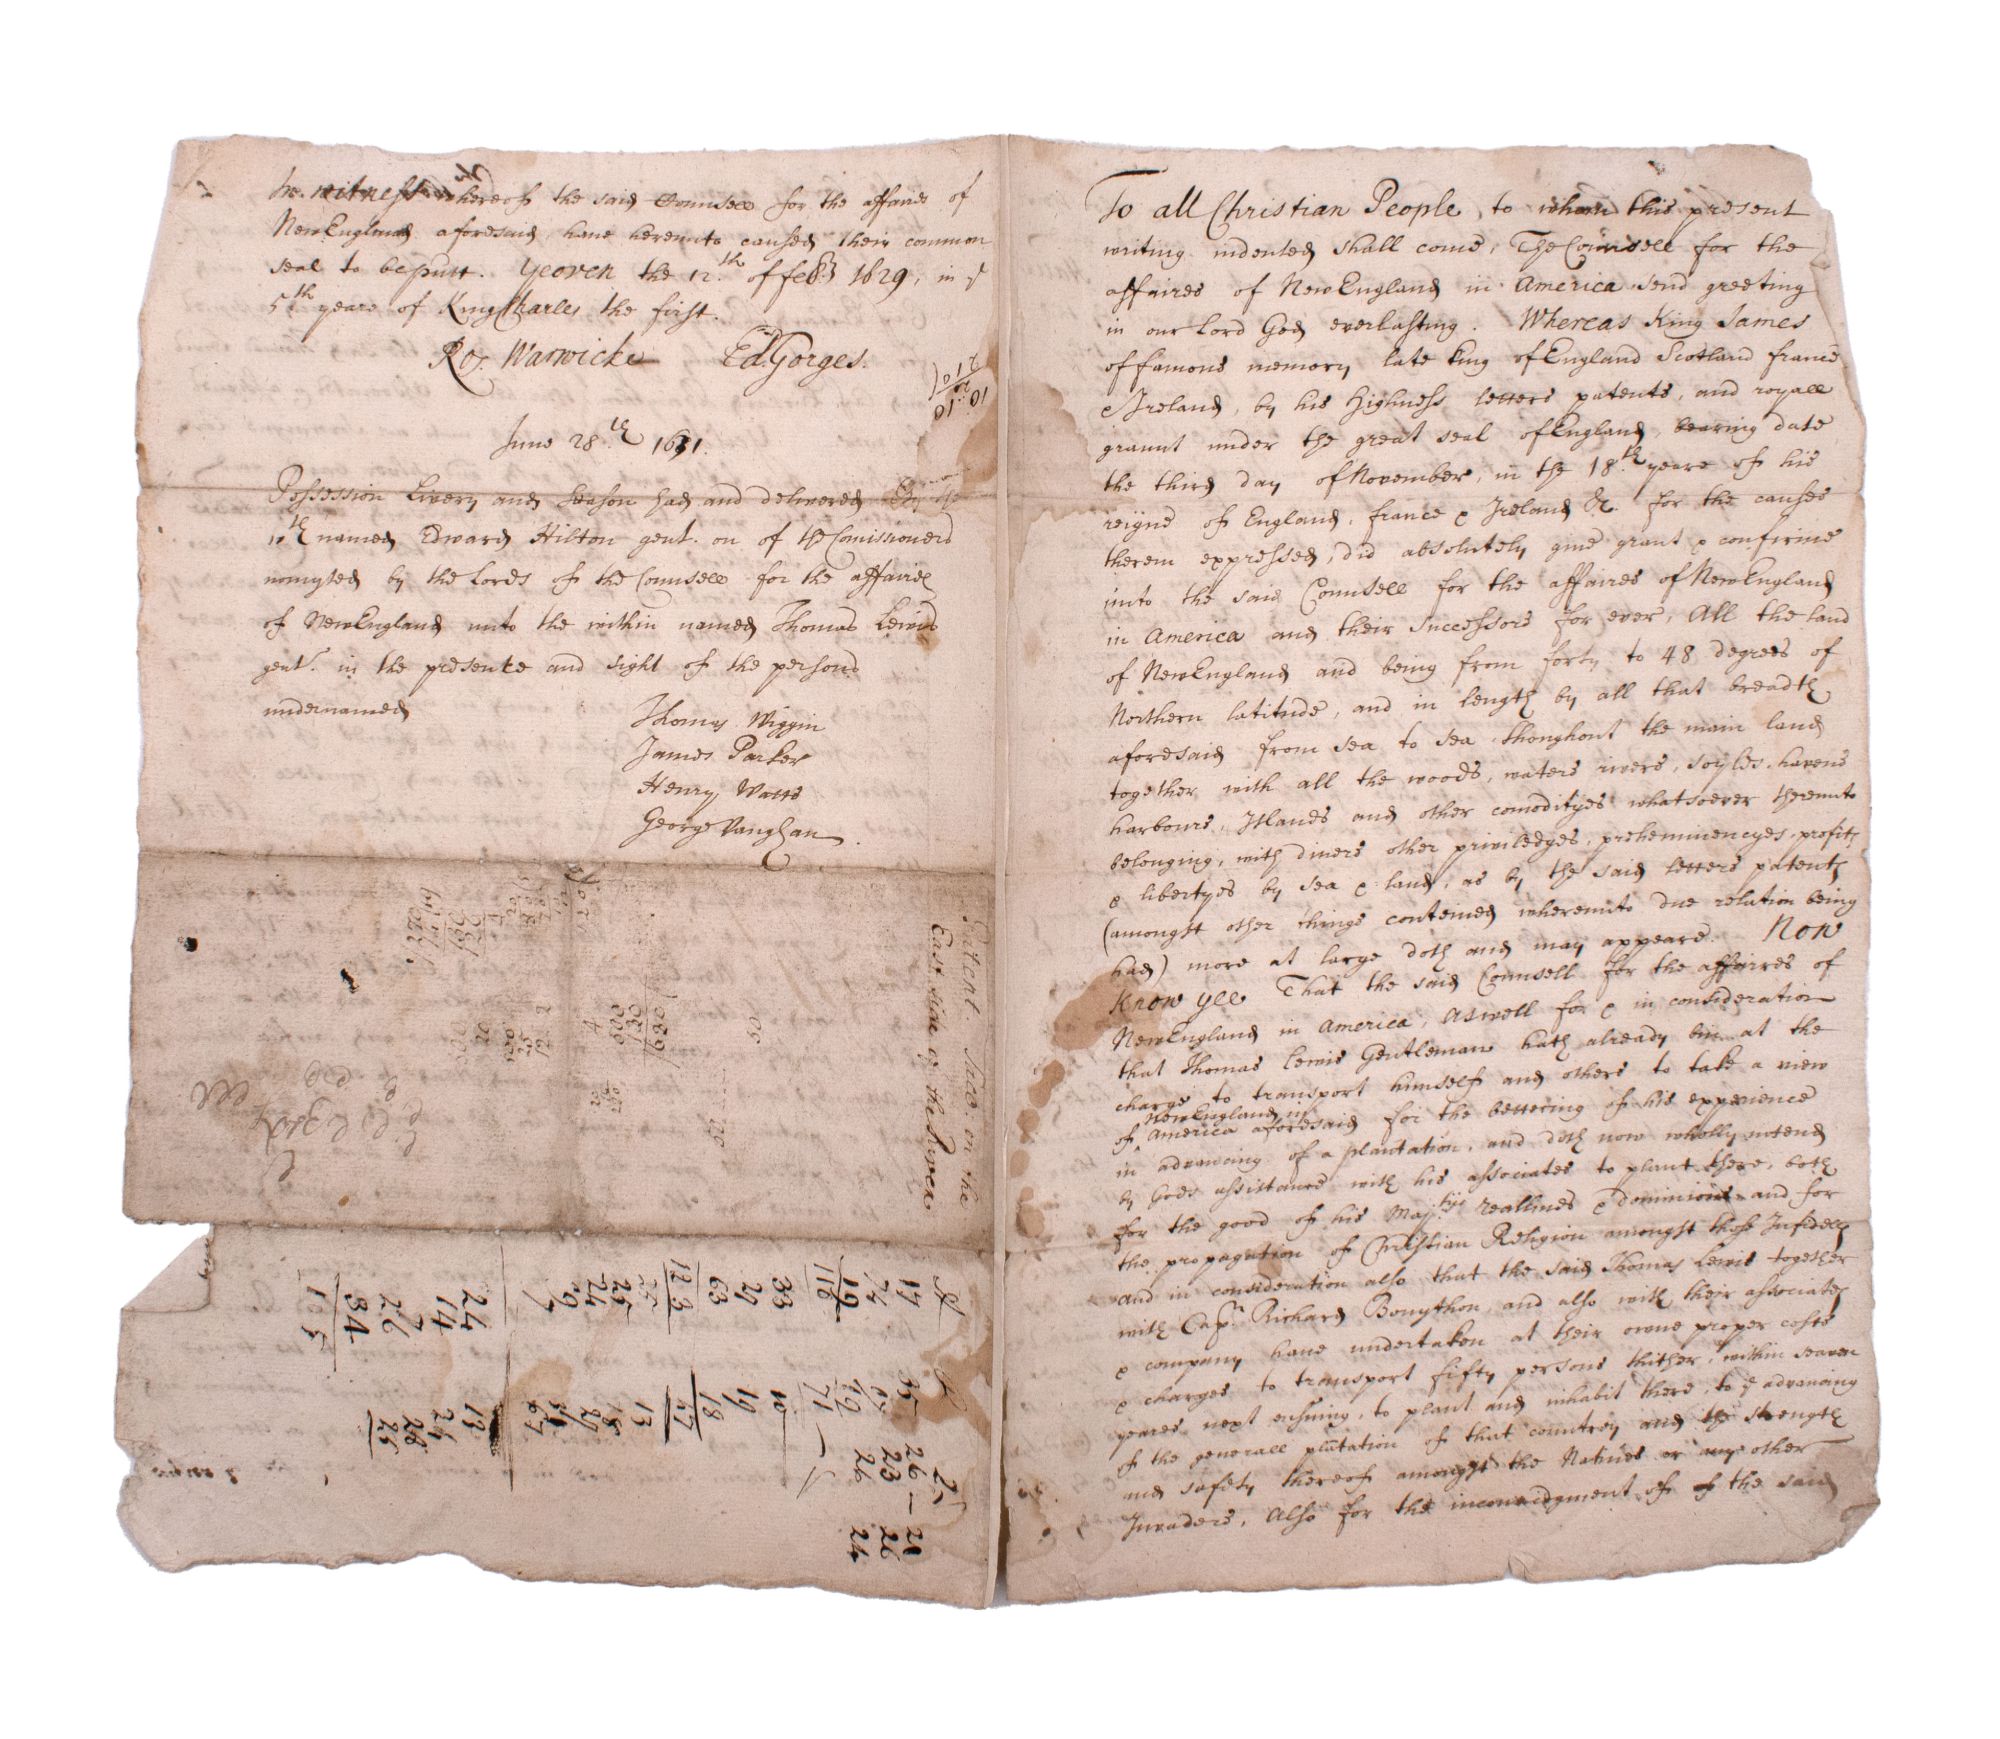 In witness whereof the said Counsell for the affaires of
NewEngland aforesaid, have hereunto caused their common
seal to be putt. Yeoven the 12.th of feb: 1629, in ye
5th yeare of King Charles the first.
Ro. Warwicke Ed. Gorges.
June 28.th 1631.
Possession Livery and Season had and delivered by the
wth named Edward Hilton gent. on of the Comissioners
nomyted by the Lords of the Counsell for the affaires
of NewEngland unto the within named Thomas Lewis
gent. in the presente and sight of the persons
undernamed
Thomas Wiggin
James Parker
Henry Watts
George Vanghan.
Patent. Saco. on the
East side of the River
50
24
14
7
26
34
105
25
24
9
33
27
63
123
17
74
19
110
35
26
23
26
25
21
26
24
13
17
18
19
To all Christian People, to whom this present
writing indented shall come, The Counsell for the
affaires of NewEngland in America send greeting
in our Lord God everlasting. Whereas King James
of famous memory late King of England Scotland france
& Ireland, by his Highness letters patents, and royall
graunt under the great seal of England, bearing date
the third day of November, in the 18.th yeare of his
reigne of England, france & Ireland &c. for the causes
therein expressed, did absolutely give grant & confirme
unto the said Counsell for the affaires of NewEngland
in America and their successors for ever, All the land
of NewEngland and being from forty to 48 degrees of
Northern latitude, and in length by all that breadth
aforesaid from sea to sea thoughout the main land
together with all the woods, waters rivers, soyles, havens
harbours, Islands and other comodityes whatsoever thereunto
belonging, with divers other priviledges, preheminencyes, profits
& libertyes by sea & land, as by the said letters patents
(amongst other things conteined whereunto due relation being
had) more at large doth and may appeare. Now
know yee That the said Counsell for the affaires of
NewEngland in America, aswell for & in consideration
that Thomas Lewis Gentleman hath already bin at the
charge to transport himself and others to take a view
of NewEngland in America aforesaid for the bettering of his experience
in advancing of a plantation, and doth now wholly intend
by Gods assistance with his associates to plant there, both
for the good of his Majtyes reallmes & dominions and for
the propagation of Christian Religion amongst those Infidells
and in consideration also that the said Thomas Lewis together
with Capt. Richard Bonython, and also with their associates
& company have undertaken at their owne proper costs
& charges to transport fifty persons thither, within seaven
yeares next ensuing, to plant and inhabit there, to ye advancing
of the generall plantation of that countrey and the strength
and safety thereof amongst the Natives or any other
Invaders, Also for the incouridgment of of the said